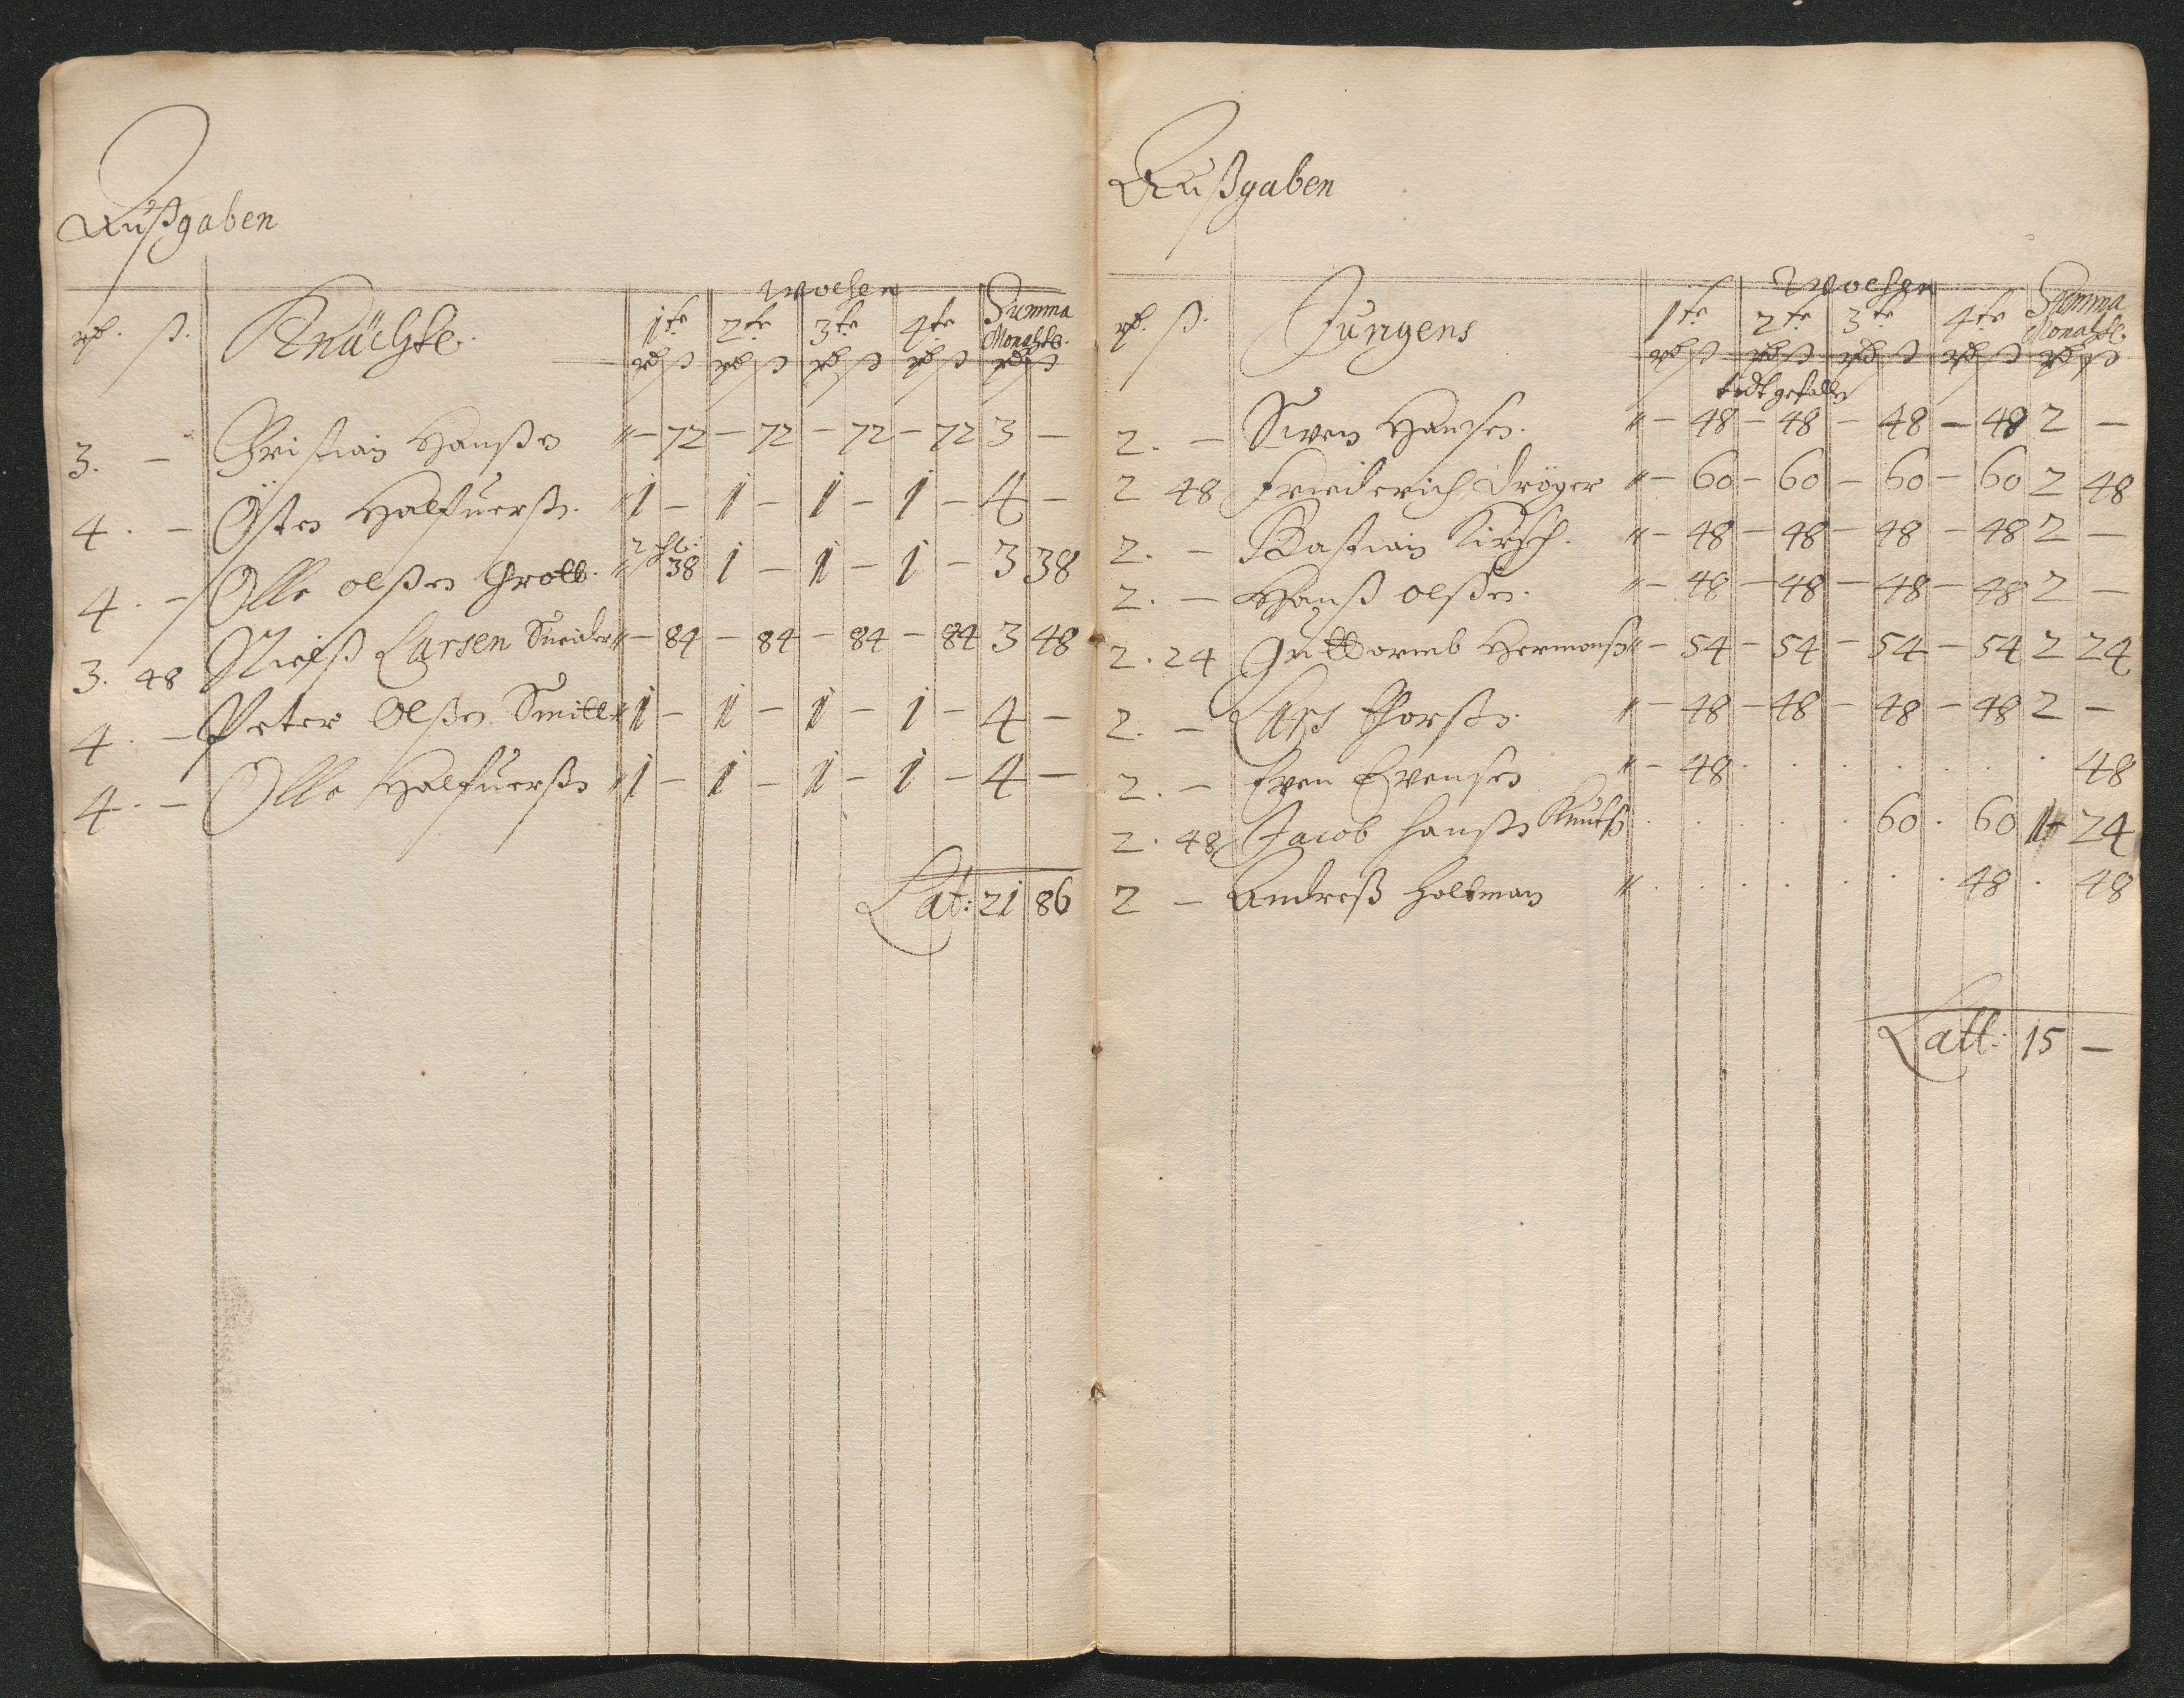 Außgaben
Wochen
rd. ß. Knächte. 1te 2te 3te 4te Summa Monahtl.
rd ß rd ß rd ß rd ß rd ß
3. — Christian Hanßen " — 72 — 72 — 72 — 72 3 —
4. — Östen Halfuerß. " 1 — 1 — 1 — 1 — 4 —
4. — Olle olßen Grott. " 2 sch: 38 1 — 1 — 1 — 3 38
3. 48 Nielß Larsen Sneider " — 84 — 84 — 84 — 84 3 48
4. — Peter Olßen Smitt " 1 — 1 — 1 — 1 — 4 —
4. — Olle Halfuerßen " 1 — 1 — 1 — 1 — 4 —
Lat: 21 86
Außgaben
Wochen
rd. ß. Jungens 1te 2te 3te 4te Summa Monahtl.
rd ß rd ß rd ß rd ß rd ß
todt gefallen
2. — Swen Hansen. " — 48 — 48 — 48 — 48 2 —
2 48 Friederich Dröger " — 60 — 60 — 60 — 60 2 48
2. — Bastian Kirsch. " — 48 — 48 — 48 — 48 2 —
2. — Hanß olßen. " — 48 — 48 — 48 — 48 2 —
2. 24 Guttormb Hermanß " — 54 — 54 — 54 — 54 2 24
2. — Lars Thorßen. " — 48 — 48 — 48 — 48 2 —
2. — Even Evensen " — 48 . . . . . . . 48
2. 48 Jacob Hanßen Knutß . . . . . 60 . 60 1 24
2 — Andreß Holtman " . . . . . . . 48 . 48
Latt: 15 —